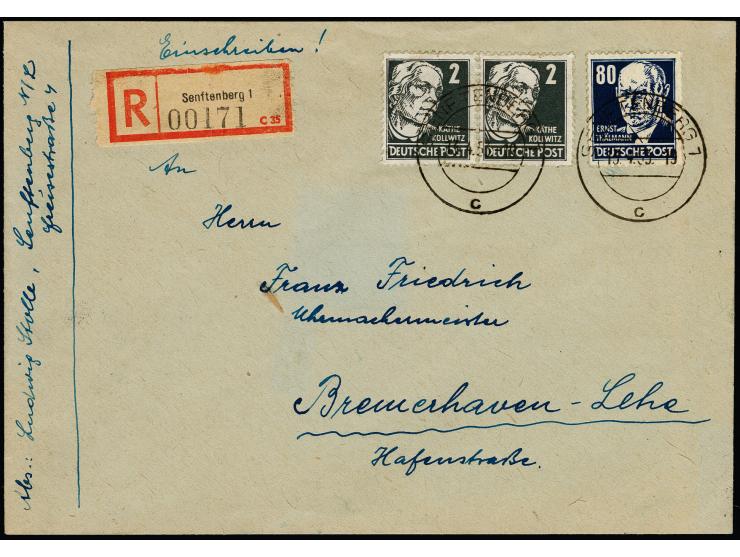 Einschreiben!
R
Senftenberg 1
00171
C 35
2
KÄTHE
KOLLWITZ
DEUTSCHE POST
2
KÄTHE
KOLLWITZ
DEUTSCHE POST
80
ERNST
THÄLMANN
DEUTSCHE POST
c
SENFTENBERG 1
c
An
Herrn
Franz Friedrich
Uhrmachermeister
Bremerhaven-Lehe
Hafenstraße.
Abs.: Ludwig Stolle, Senftenberg N/L